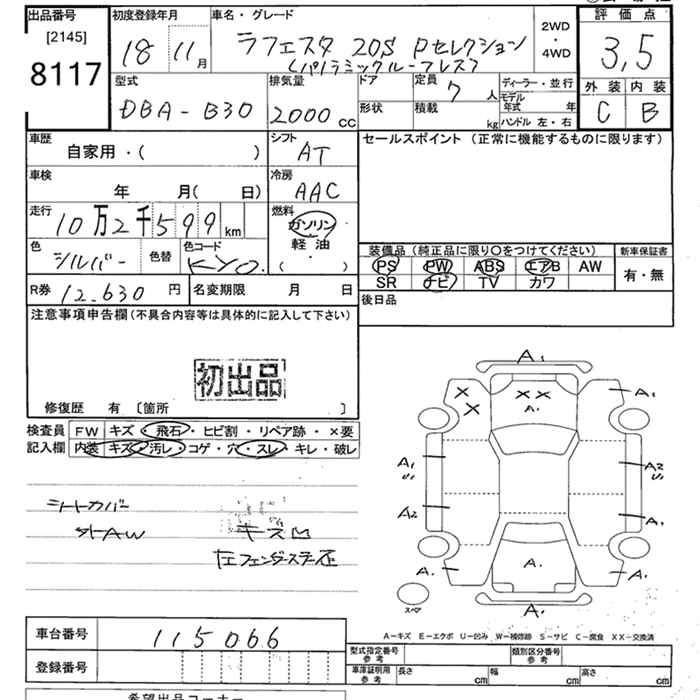 出品番号 初度登録年月 車名・グレード 評価点
[2145] 8117
18 11月
ラフェスタ 20S Pセレクション
(パノラミックルーフレス)
2WD・4WD
3,5
外装 内装
C B
型式 排気量 ドア 定員 7人 ディーラー・並行
DBA-B30 2000cc 形状 積載 kg モデル年式 年
ハンドル 左・右
車歴 シフト セールスポイント (正常に機能するものに限ります)
自家用・( ) AT
車検 冷房
年 月( 日) AAC
走行 燃料
10万2千599km ガソリン
軽油
( ・ )
色 シルバー 色替 色コード KY0.
装備品 (純正品に限り○をつけてください) 新車保証書
PS PW ABS エアB AW 有・無
SR ナビ TV カワ
R券 12.630円 名変期限 月 日 後日品
注意事項申告欄(不具合内容等は具体的に記入して下さい)
初出品
修復歴 有 〔箇所 〕
検査員 FW キズ・飛石・ヒビ割・リペア跡・×要
記入欄 内装 キズ・汚レ・コゲ・穴・スレ・キレ・破レ
シートカバー
社外AW
キズ凹
左フェンダーステー歪
A1
X X
X X
A.
A1
A1
U1
A2
U1
A2
A1
A.
A.
A.
スペア
A.
A-キズ E-エクボ U-凹み W-補修跡 S-サビ C-腐食 XX-交換済
車台番号 115066
登録番号
型式指定番号 参考 類別区分番号 参考
車庫証明用 参考 長さ cm 幅 cm 高さ cm
希望出品コーナー